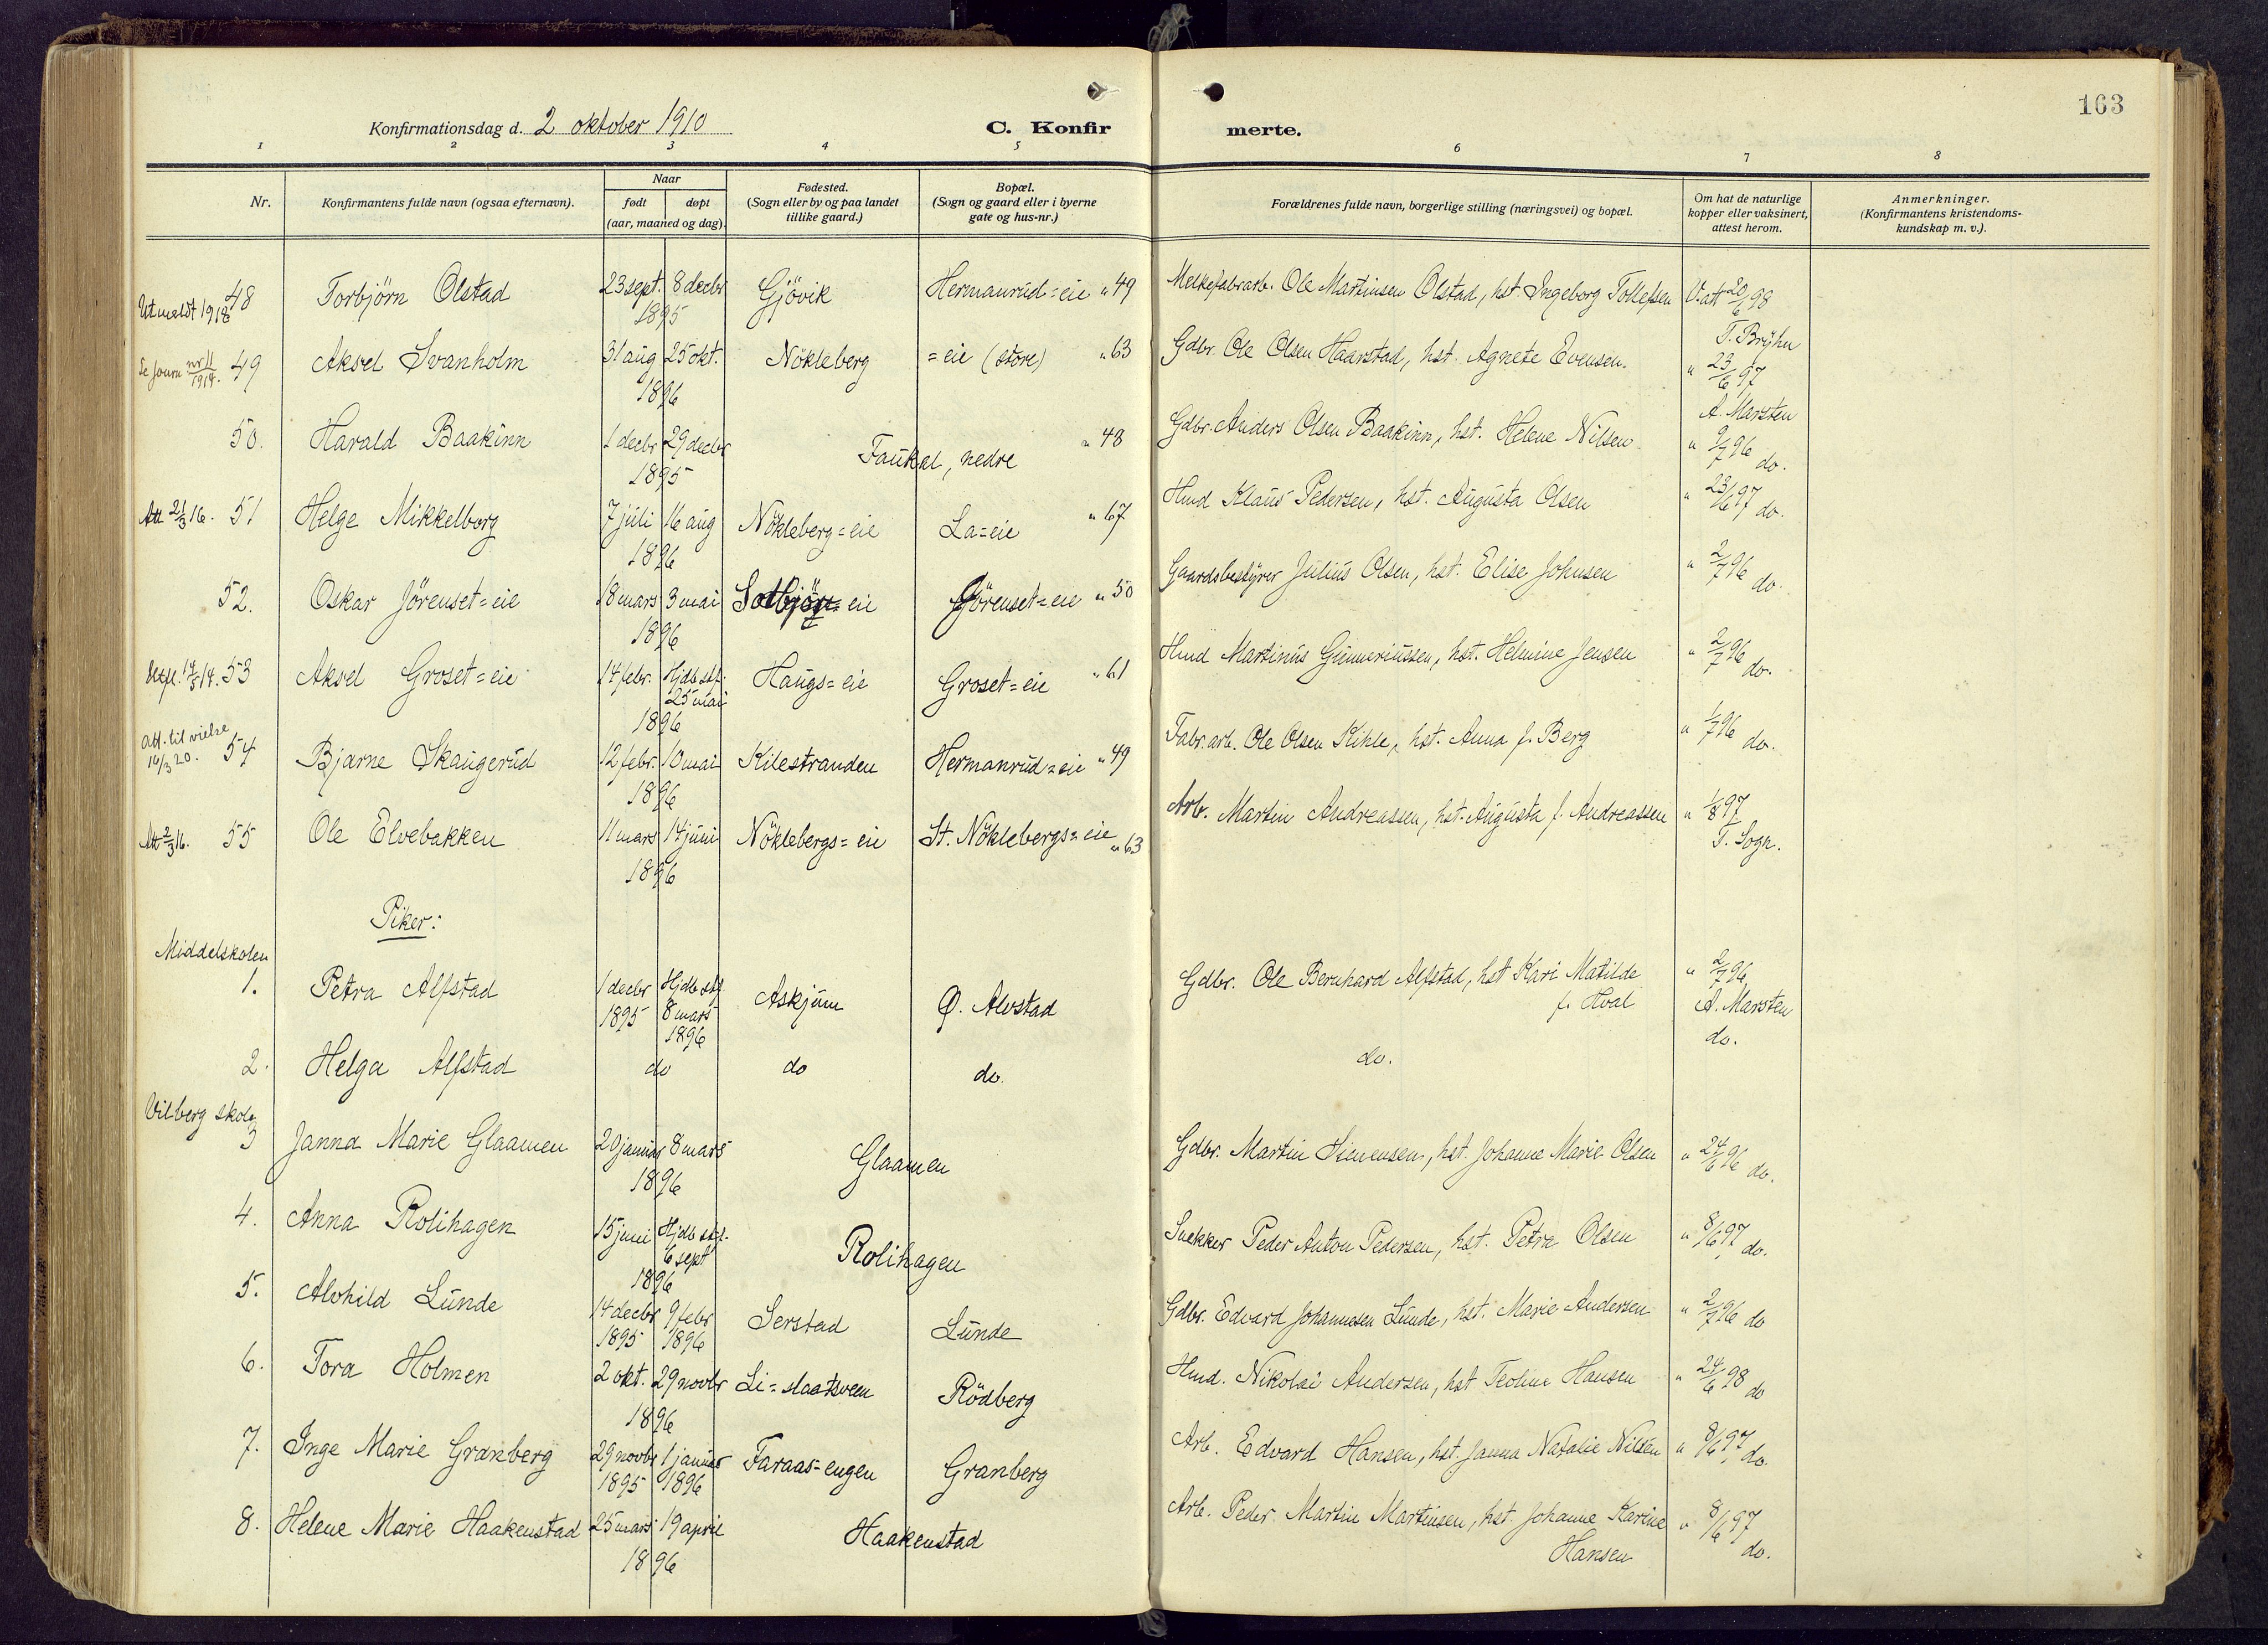 163
Konfirmationsdag d. 2 oktober 1910
C. Konfir
merte.
1 2 3 4 5 6 7 8
Nr.
Konfirmantens fulde navn (ogsaa efternavn).
Naar
født døpt
(aar, maaned og dag).
Fødested.
(Sogn eller by og paa landet
tillike gaard.)
Bopæl.
(Sogn og gaard eller i byerne
gate og hus-nr.)
Forældrenes fulde navn, borgerlige stilling (næringsvei) og bopæl.
Om hat de naturlige
kopper eller vaksinert,
attest herom.
Anmerkninger.
(Konfirmantens kristendoms-
kundskap m. v.).
Utmeldt 1918 48 Torbjörn Olstad 23 sept. 8 decbr 1895 Gjövik Hermanrud=eie " 49 Melkefabrarb. Ole Martinsen Olstad, hst. Ingeborg Tollefsen V. att 20/6 98
T. Bryhn
Se journ nr 11/1914. 49 Aksel Svanholm 31 aug 25 okt. 1896 Nökleberg =eie (store) " 63 Gdbr. Ole Olsen Haarstad, hst. Agnete Evensen. " 23/6 97
A. Marsten
50. Harald Baakinn 1 decbr 29 decbr 1895 Faukal, nedre " 48 Gdbr. Anders Olsen Baakinn, hst. Helene Nilsen " 9/7 96 do.
Att 21/3 16. 51 Helge Mikkelborg 7 juli 16 aug 1896 Nökleberg=eie La=eie " 67 Hmd Klaus Pedersen, hst. Augusta Olsen " 23/6 97 do.
52. Oskar Jörenset=eie 18 mars 3 mai 1896 eie Jörenset=eie " 50 Gaardsbestyrer Julius Olsen, hst. Elise Johnsen " 2/7 96 do.
14/5 14. 53 Aksel Groset=eie 14 febr. Hjdb stf. 25 mai 1896 Haugs=eie Groset=eie " 61 Hmd Martinus Gunneriussen, hst. Helmine Jensen " 2/7 96 do.
Att. til vielse 10/3 20. 54 Bjarne Skaugerud 12 febr. 10 mai 1896 Kilestranden Hermanrud=eie " 49 Fabr.arb. Ole Olsen Kihle, hst. Anna f. Berg " 1/7 96 do.
Att 2/3 16. 55 Ole Elvebakken 11 mars 14 juni 1896 Nöklebergs=eie St. Nöklebergs=eie " 63 Arb. Martin Andreassen, hst. Augusta f. Andreassen " 1/8 97
T. Sogn.
Piker:
Middelskolen
1. Petra Alfstad 1 decbr 1895 Hjdb stf. 8 mars 1896 Askjum Ø. Alvstad Gdbr. Ole Bernhard Alfstad, hst Kari Matilde f. Hval " 2/7 96
A. Marsten
2. Helga Alfstad do do do. do. do.
Vilberg skole
3 Janna Marie Glaamen 20 januar 8 mars 1896 Glaamen Gdbr. Martin Simensen, hst. Johanne Marie Olsen " 24/6 96 do.
4. Anna Rolihagen 15 juni Hjdb stf. 6 sept 1896 Rolihagen Snekker Peder Anton Pedersen, hst. Petra Olsen " 8/6 97 do.
5. Alvhild Lunde 14 decbr 1895 9 febr 1896 Serstad Lunde Gdbr. Edvard Johannesen Lunde, hst. Marie Andersen " 2/7 96 do
6. Tora Holmen 2 okt. 29 novbr 1896 Li=slaatsveen Rödberg Hmd. Nikolai Andersen, hst Teoline Hansen " 24/6 98 do
7. Inge Marie Granberg 29 novbr 1895 1 januar 1896 Faraas=engen Granberg Arb. Edvard Hansen, hst. Janna Natalie Nilsen " 8/6 97 do.
8. Helene Marie Haakenstad 25 mars 19 april 1896 Haakenstad Arb. Peder Martin Martinsen, hst. Johanne Karine Hansen " 8/6 97 do.